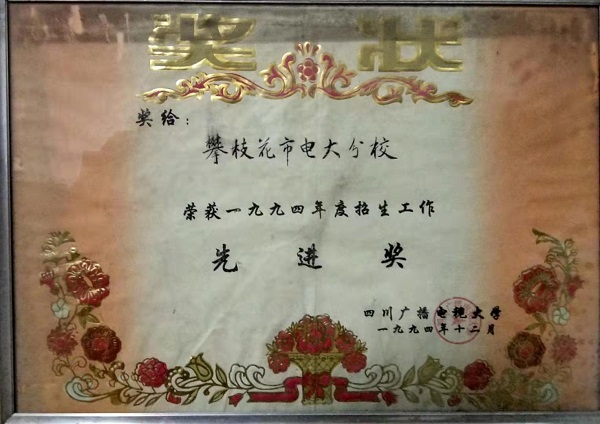 奖状
奖给：
攀枝花市电大分校
荣获一九九四年度招生工作
先进奖
四川广播电视大学
一九九四年十二月